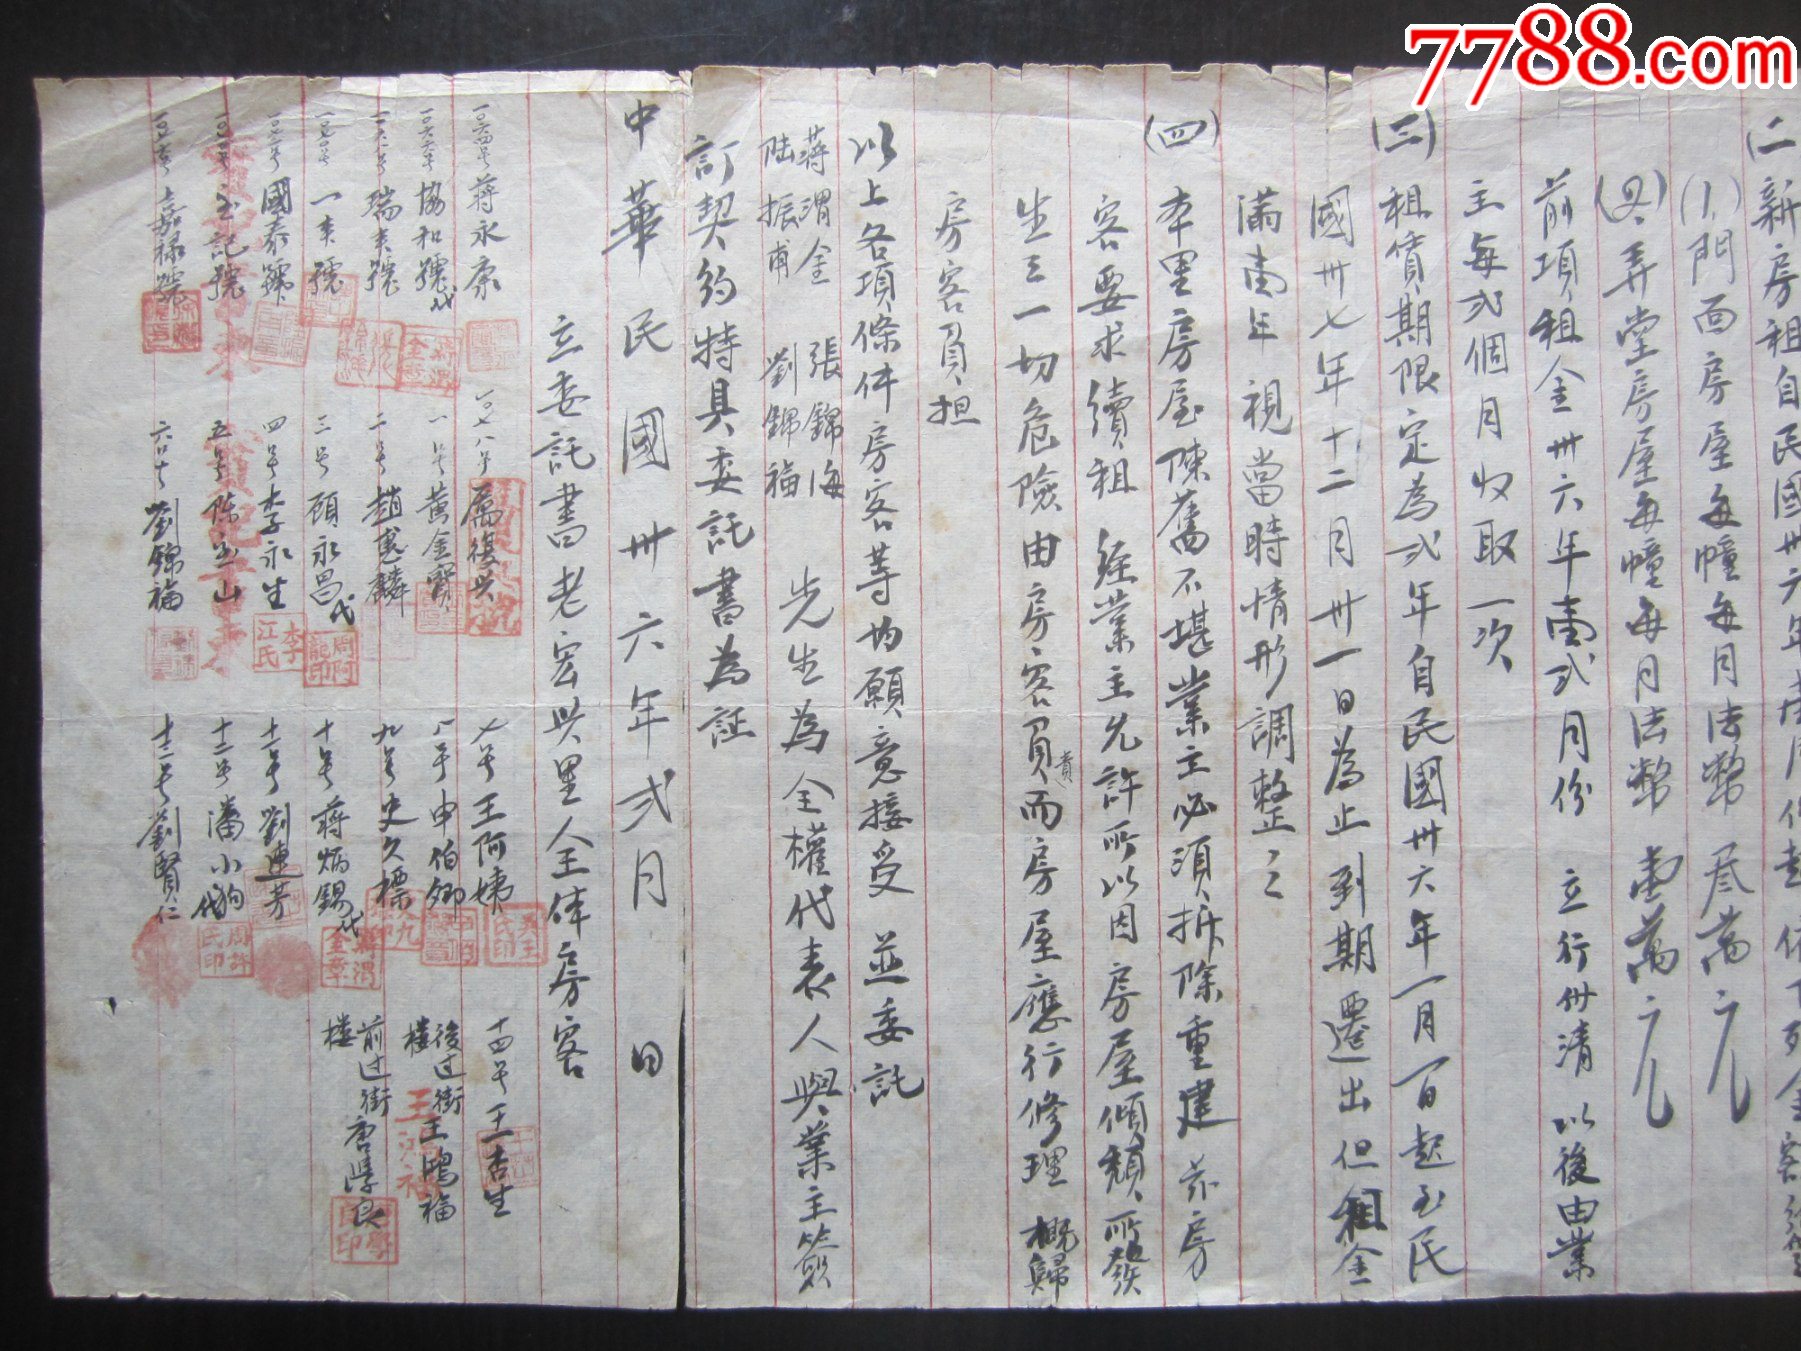 7788.com
(二)新房租自民國卅六年
(1)門面房屋每幢每月法幣叁萬元
(2)弄堂房屋每幢每月法幣壹萬元
前項租金卅六年壹弍月份 立行付清 以後由業
主每弍個月收取一次
(三)租賃期限定為弍年自民國卅六年一月一日起至民
國卅七年十二月卅一日為止到期遷出但租金
滿壹年 視當時情形調整之
(四)本里房屋陳舊不堪業主必須拆除重建 茲房
客要求續租 經業主允許所以因房屋傾頹所發
生之一切危險由房客負責而房屋應行修理 概歸
房客負担
以上各項條件房客等均願意接受 並委託
蔣渭金 張錦海
陆振甫 劉錦福
先生為全權代表人與業主簽
訂契約特具委託書為証
中華民國卅六年弍月 日
立委託書曰老宏興里人全体房客
一〇六四号 蔣永康
一〇六六号 協和號代
一〇六八号 瑞夫號
一〇七〇号 一夫號
一〇七二号 國泰號
玉記號
嘉祿號
一〇七八号 厲復興
一号 黄金寶
二号 趙惠麟
三号 顾永昌代
四号 李永生
五号 陈玉山
劉錦福
七号 王阿姨
八号 申伯卿
九号 史久標
十号 蔣炳錫代
十一号 劉連芳
十二号 潘小狗代
十三号 劉賢仁
十四号 王杏生
後过街樓 王鴻福
前过街樓 唐厚良